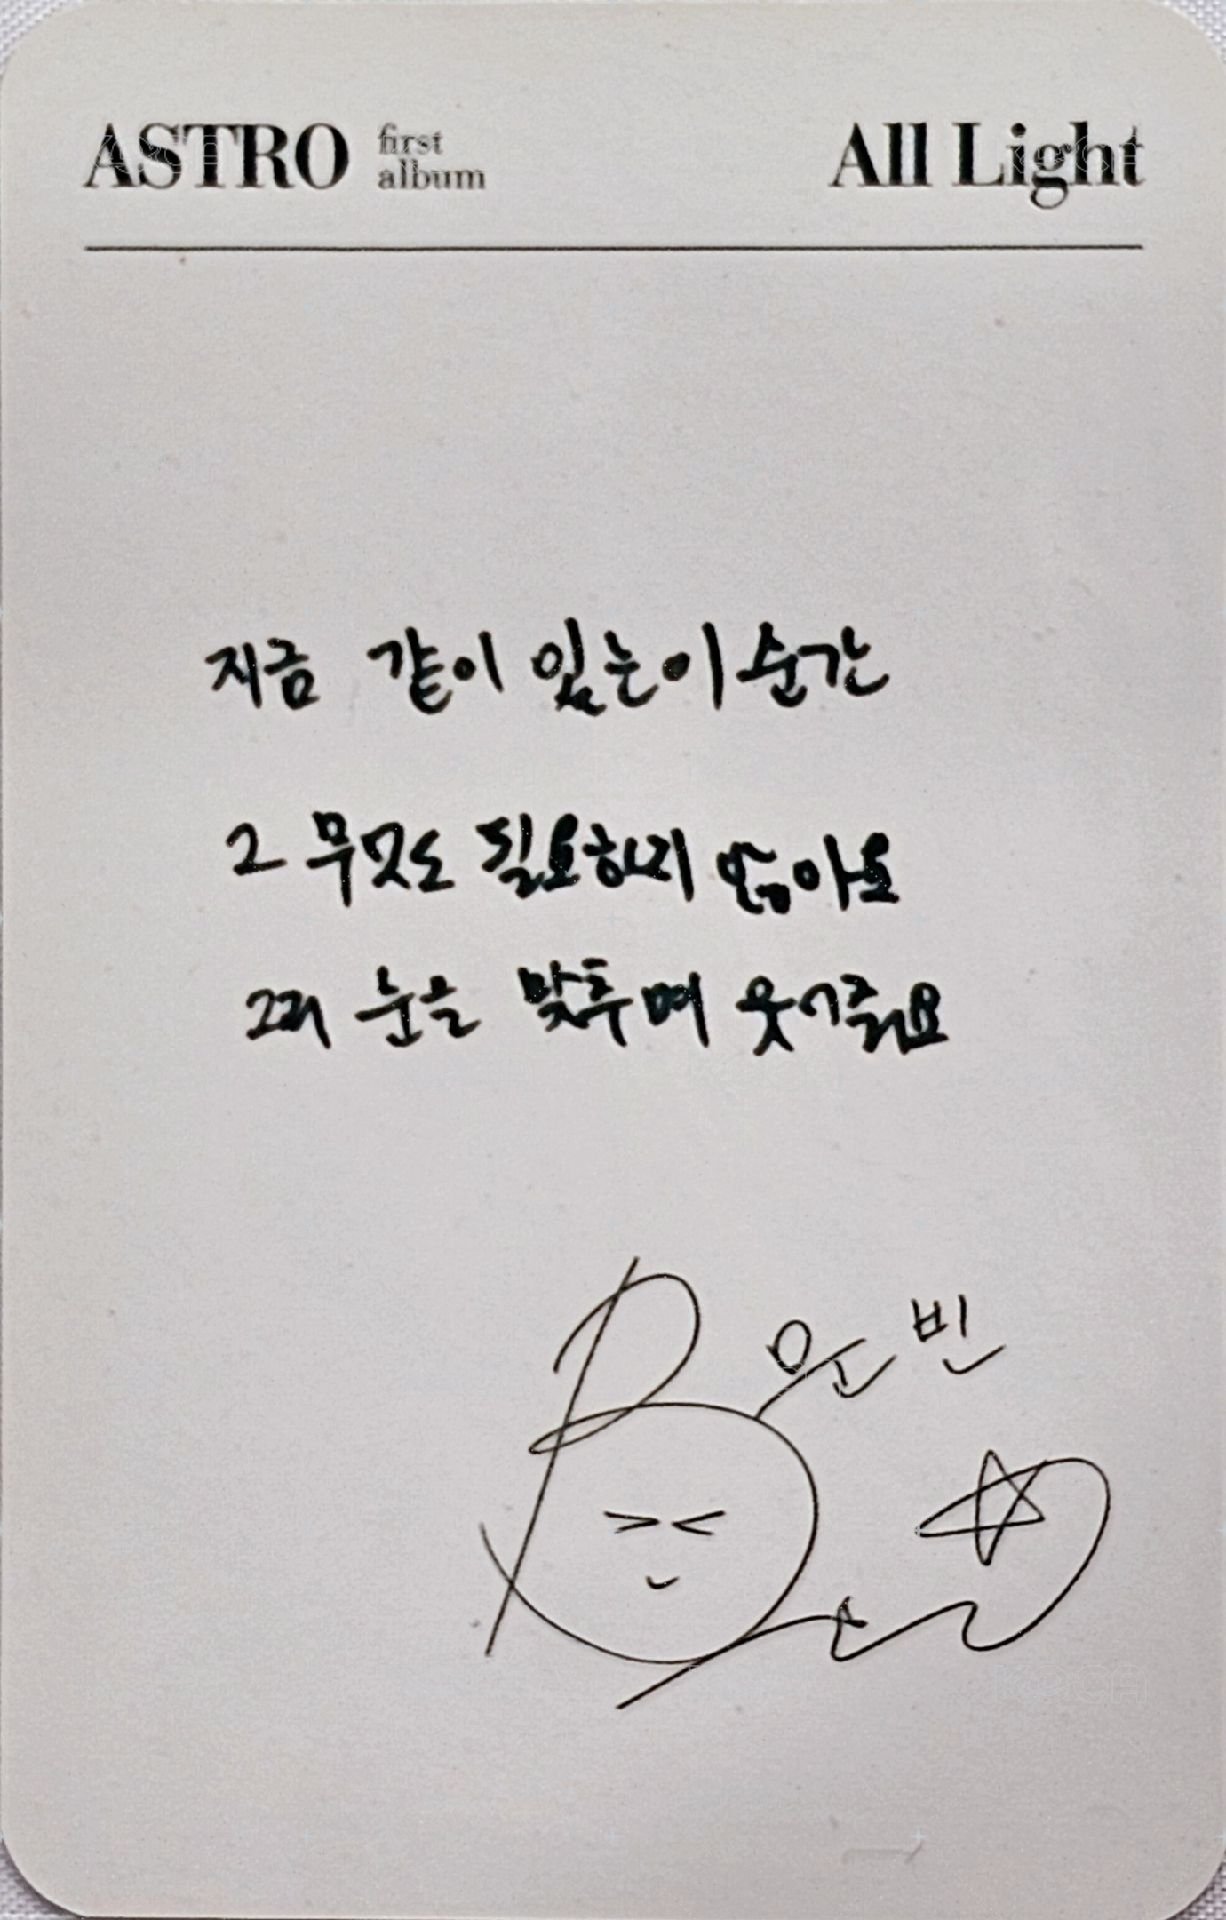 ASTRO first album All Light
지금 같이 있는 이 순간
그 무엇도 필요하지 않아요
그저 눈을 맞추며 웃어줘요
은빈